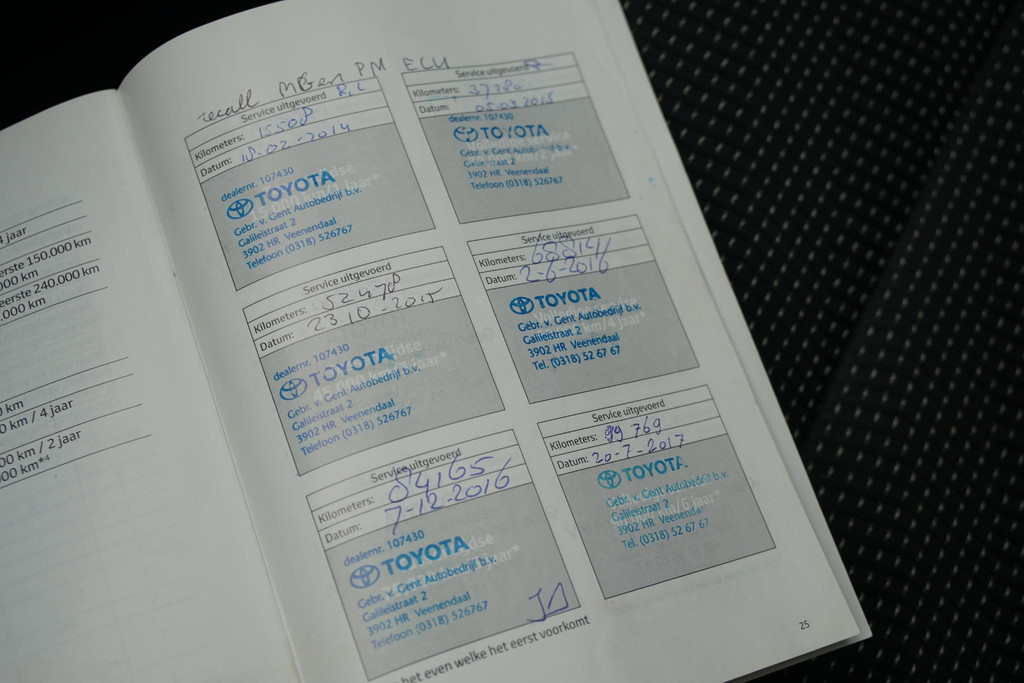 4 jaar
eerste 150.000 km
000 km
eerste 240.000 km
.000 km
0 km
km / 4 jaar
00 km / 2 jaar
000 km*⁴
recall MGen PM ECU
Service uitgevoerd
Kilometers: 15508
Datum: 18-02-2014
dealernr. 107430
TOYOTA
Gebr. v. Gent Autobedrijf b.v.
Galileistraat 2
3902 HR Veenendaal
Telefoon (0318) 526767
Service uitgevoerd
Kilometers: 37280
Datum: 05.03.2015
dealernr. 107430
TOYOTA
Gebr. v. Gent Autobedrijf b.v.
Galileistraat 2
3902 HR Veenendaal
Telefoon (0318) 526767
Service uitgevoerd
Kilometers: 52478
Datum: 23 10-2015
dealernr. 107430
TOYOTA
Gebr. v. Gent Autobedrijf b.v.
Galileistraat 2
3902 HR Veenendaal
Telefoon (0318) 526767
Service uitgevoerd
Kilometers: 68814
Datum: 2-6-2016
TOYOTA
Gebr. v. Gent Autobedrijf b.v.
Galileistraat 2
3902 HR Veenendaal
Tel. (0318) 52 67 67
Service uitgevoerd
Kilometers: 84165
Datum: 7-12-2016
dealernr. 107430
TOYOTA
Gebr. v. Gent Autobedrijf b.v.
Galileistraat 2
3902 HR Veenendaal
Telefoon (0318) 526767
Service uitgevoerd
Kilometers: 99 769
Datum: 20-7-2017
TOYOTA
Gebr. v. Gent Autobedrijf b.v.
Galileistraat 2
3902 HR Veenendaal
Tel. (0318) 52 67 67
het even welke het eerst voorkomt
25